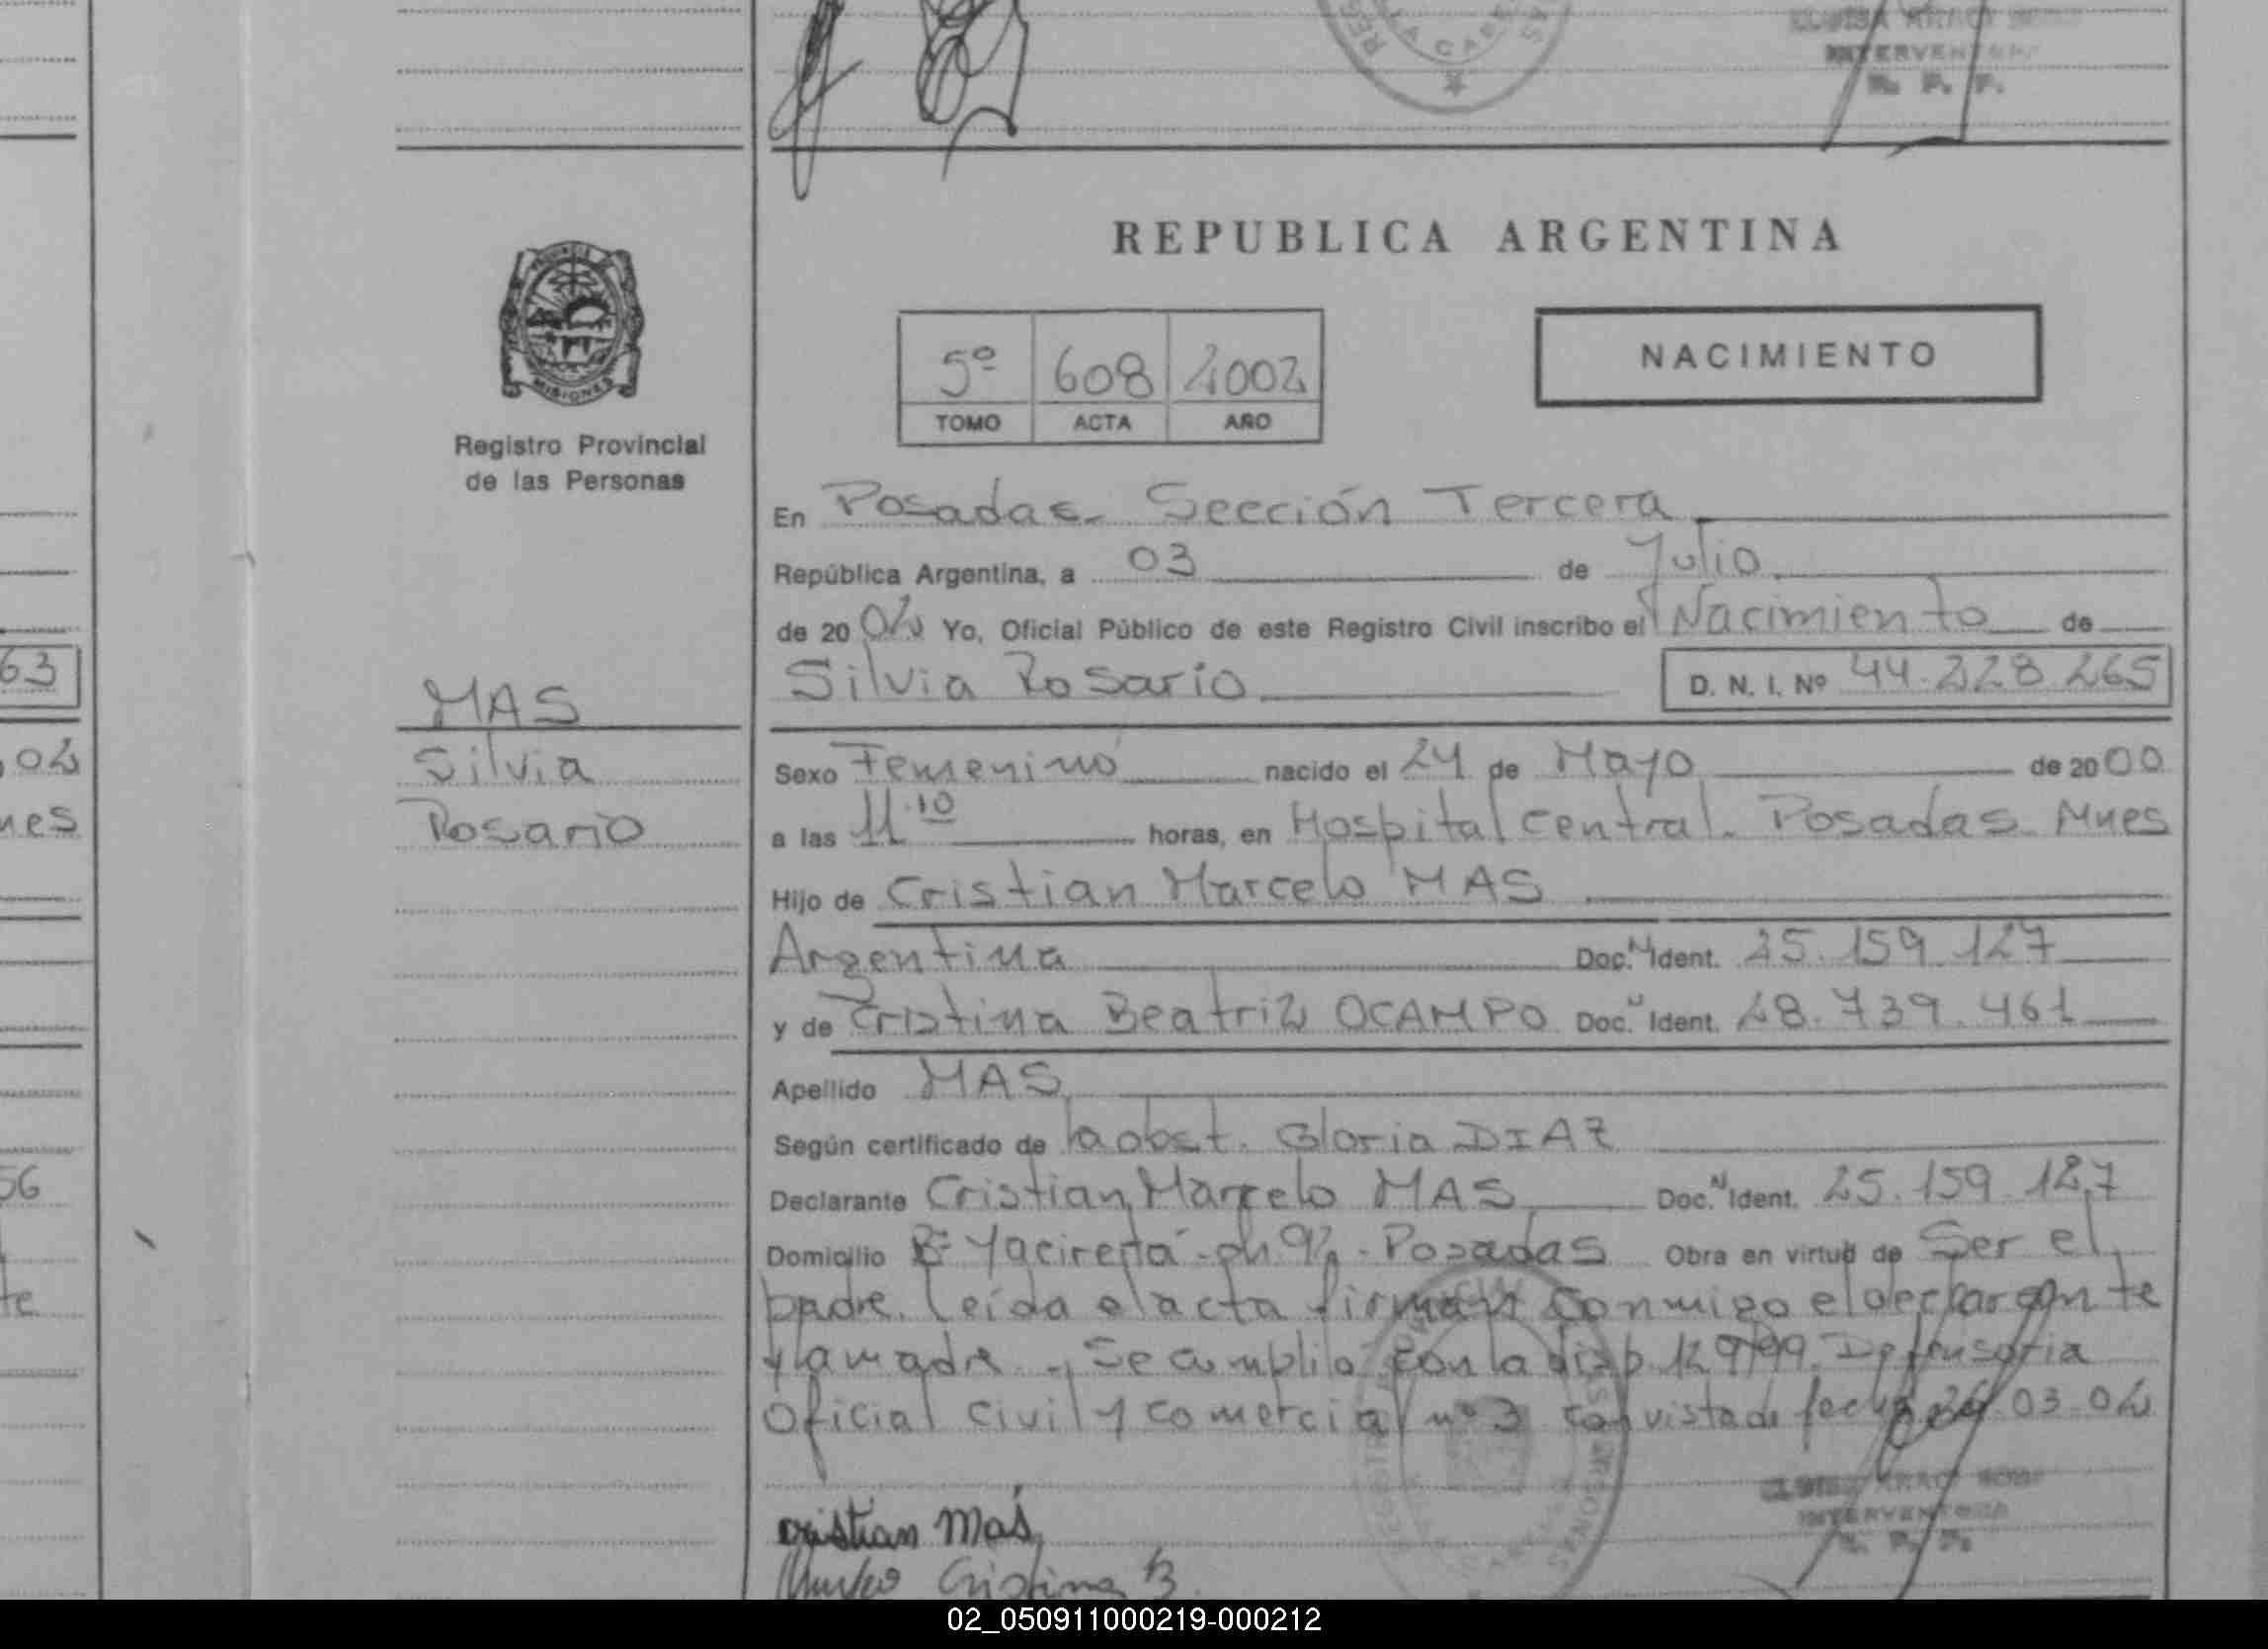 REPUBLICA ARGENTINA
NACIMIENTO
5º 608 2002
TOMO ACTA AÑO
MISIONES
Registro Provincial
de las Personas
En Posadas- Sección Tercera
República Argentina, a 03 de Julio
de 20 02 Yo, Oficial Público de este Registro Civil inscribo el Nacimiento de
Silvia Rosario D. N. I. Nº 44.228.265
MAS
Silvia
Rosario
Sexo Femenino nacido el 24 de Mayo de 20 00
a las 11.10 horas, en Hospital Central. Posadas Mnes
Hijo de Cristian Marcelo MAS
Argentina Doc. N Ident. 25.159.127
y de Cristina Beatriz OCAMPO Doc. N Ident. 28.739.461
Apellido MAS
Según certificado de la obst. Gloria DIAZ
Declarante Cristian Marcelo MAS Doc. N Ident. 25.159.127
Domicilio Bº Yacireta - ch 92 - Posadas Obra en virtud de Ser el
padre. Leída el acta firman conmigo el declarante
y la madre. Se cumplio con la disp. 129/99. Defensoria
Oficial Civil y Comercial nº 3 con vista de fecha 26.03.02
INTERVENTORA
R. P. P.
Cristian Mas
Cristina B.
63
02
nes
56
te
02_050911000219-000212